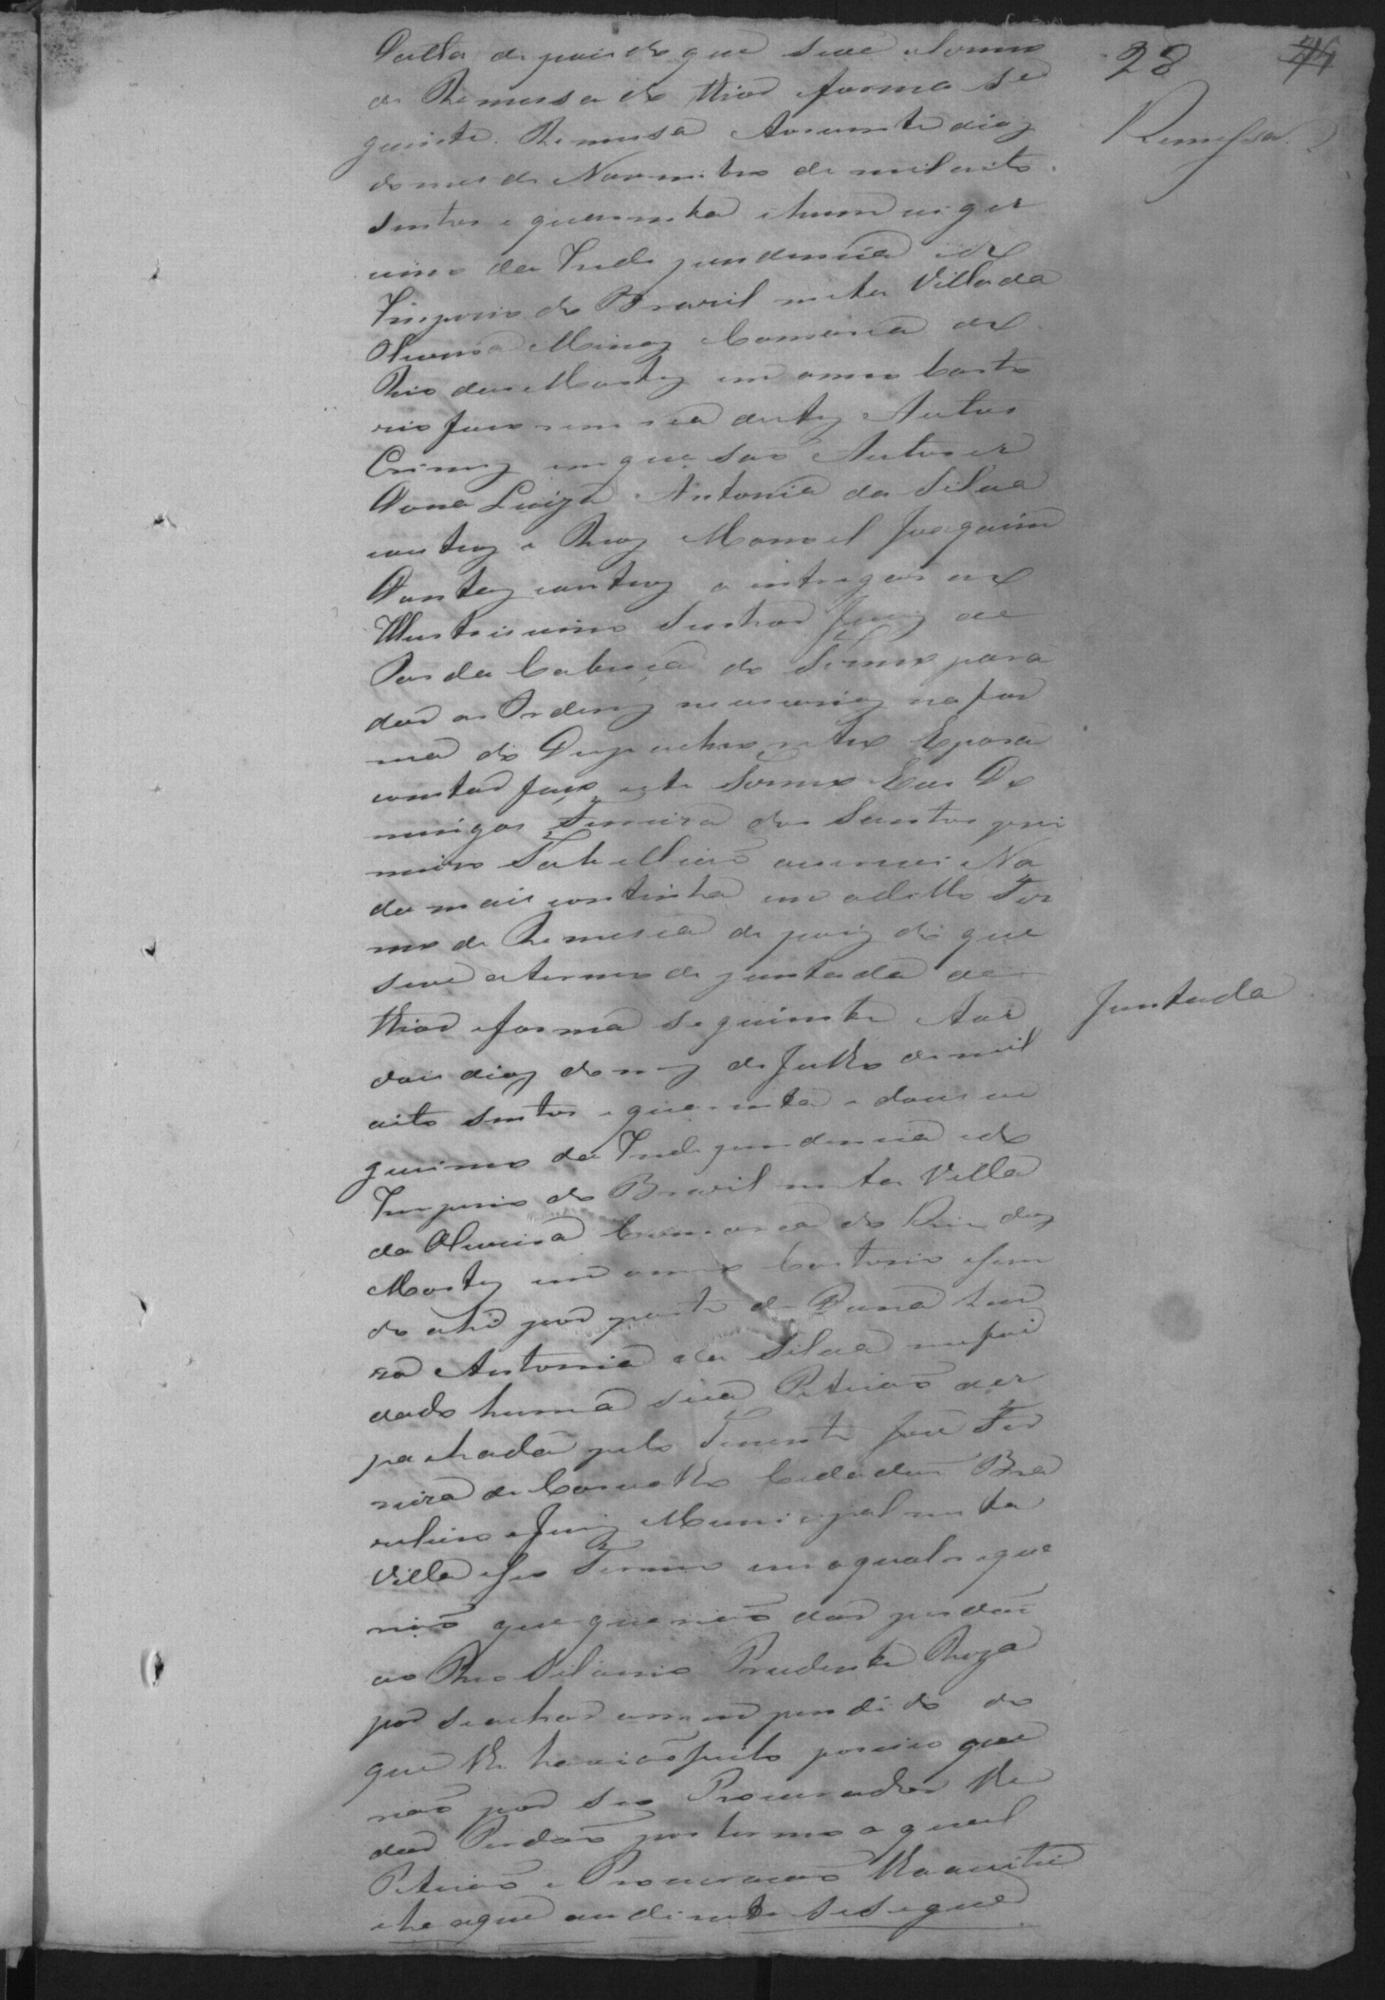 28
Remessa
Data depois do que seve o Termo
de Remessa do thior e forma Se
guinte. Remessa Aos vinte dias
do mes de Novembro de mil oito
sentos e quarenta e hum viges
simo da Independencia e do
Imperio do Brazil nesta Villa da
Oliveira Minas Comarca do
Rio das Mortes em o meu Carto
rio faço remessa destes Autos
Crimes em que são Autores
Dona Luiza Antonia da Silva
e outros e Reos Manoel Joaquim
Dantas e outros e intregar ao
Illustrissimo Senhor Juiz de
Pas da Cabeça do Termo para
dar as Ordens necessarias na for
ma do Despacho retro E para
constar faço este Termo Eu Do
mingos Ferreira dos Santos pri
meiro Tabellião que escrevi Na
da mais continha em o ditto Ter
mo de Remessa depois do que
seve o termo de juntada do
thior e forma seguinte Aos
Juntada
dois dias do mes de Julho de mil
oito sentos e quarenta e dous vi
gessimo da Independencia e do
Imperio do Brazil nesta Villa
da Oliveira Comarca do Rio das
Mortes em o meu Cartorio e sen
do ahi por parte de Dona Lui
za Antonia da Silva me foi
dado huma sua Petição des
pachada pelo Tenente José Fer
reira de Carvalho Cidadão Bra
zileiro e Juiz Municipal nesta
Villa e seu Termo em a qual reque
rião que querião dar perdão
ao Reo Silverio Prudente Roza
por se achar arrependido do
que lhe havião feito por isso que
rião por seu Procurador lhe
dar Perdão por termo a qual
Petição e Procuração lha auctuei
e he a que ao diante se segue